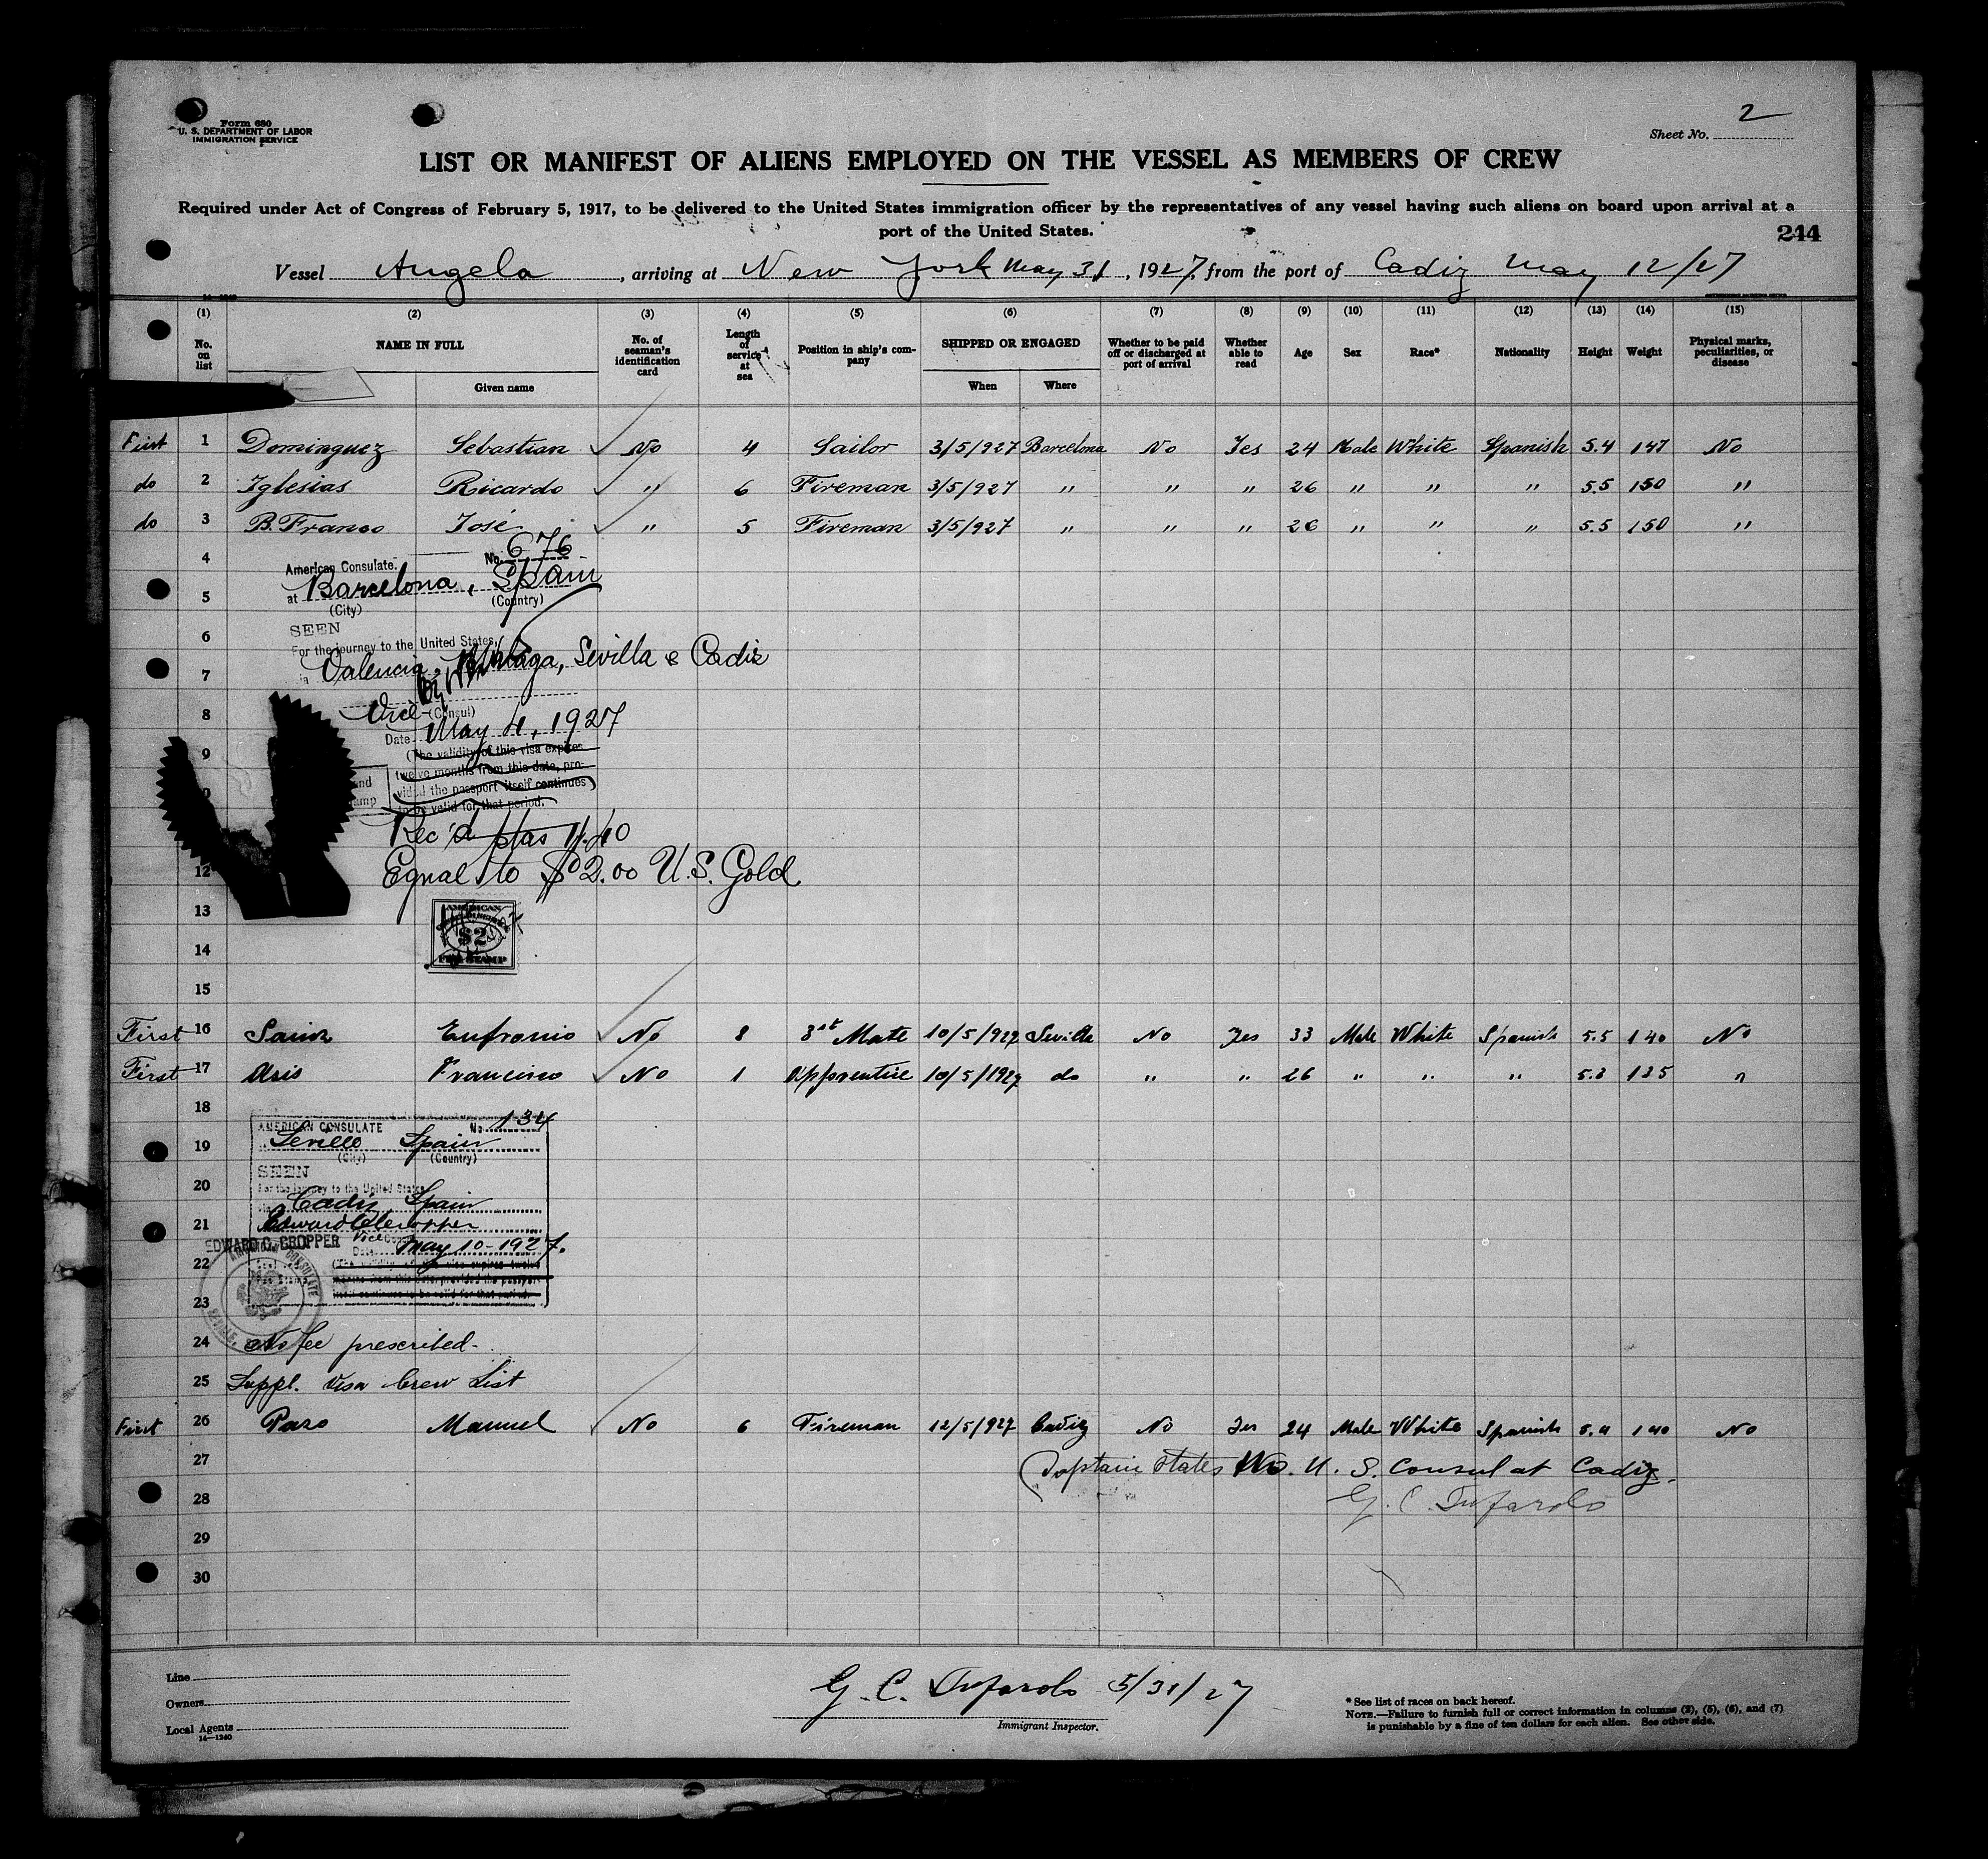 Form 680
U. S. DEPARTMENT OF LABOR
IMMIGRATION SERVICE
Sheet No. 2
LIST OR MANIFEST OF ALIENS EMPLOYED ON THE VESSEL AS MEMBERS OF CREW
Required under Act of Congress of February 5, 1917, to be delivered to the United States immigration officer by the representatives of any vessel having such aliens on board upon arrival at a
port of the United States.
244
Vessel Angela, arriving at New York May 31, 1927, from the port of Cadiz May 12/27
(1) (2) (3) (4) (5) (6) (7) (8) (9) (10) (11) (12) (13) (14) (15)
No. on list NAME IN FULL No. of seaman's identification card Length of service at sea Position in ship's company SHIPPED OR ENGAGED Whether to be paid off or discharged at port of arrival Whether able to read Age Sex Race* Nationality Height Weight Physical marks, peculiarities, or disease
Given name When Where
First 1 Dominguez Sebastian No 4 Sailor 3/5/927 Barcelona No Yes 24 Male White Spanish 5.4 147 No
do 2 Iglesias Ricardo " 6 Fireman 3/5/927 " " " 26 " " " 5.5 150 "
do 3 B. Franco José " 5 Fireman 3/5/927 " " " 26 " " " 5.5 150 "
4
American Consulate. No. 676
at Barcelona, Spain
5
(City) (Country)
6
SEEN
For the journey to the United States,
7
Valencia, Malaga, Sevilla & Cadiz
8
Vice (Consul)
Date May 4, 1927
9
(The validity of this visa expires
twelve months from this date, pro-
vided the passport itself continues
to be valid for that period.
Rec'd ptas 11.40
12
Equal to $2.00 U.S. Gold
13
AMERICAN
$2
FEE STAMP
14
15
First 16 Eufronio No 8 3rd Mate 10/5/927 Sevilla No Yes 33 Male White Spanish 5.5 140 No
First 17 Asis Francisco No 1 Apprentice 10/5/1927 do " " 26 " " " 5.3 135 "
18
AMERICAN CONSULATE No. 134
19
Seville Spain
(City) (Country)
SEEN
20
For the journey to the United States
Cadiz Spain
21
EDWARD C. CROPPER Vice Consul
Date May 10-1927.
22
AMERICAN CONSULATE
SEVILLE,
23
24 No fee prescribed-
25 Suppl. Visa Crew List
First 26 Pazo Manuel No 6 Fireman 12/5/927 Cadiz No Yes 24 Male White Spanish 5.4 140 No
27 Captain states No U. S. Consul at Cadiz.
28 G. C. Tufarolo
29
30
Line
Owners
Local Agents
14—1240
G. C. Tufarolo 5/31/27
Immigrant Inspector.
* See list of races on back hereof.
NOTE.—Failure to furnish full or correct information in columns (2), (5), (6), and (7)
is punishable by a fine of ten dollars for each alien. See other side.